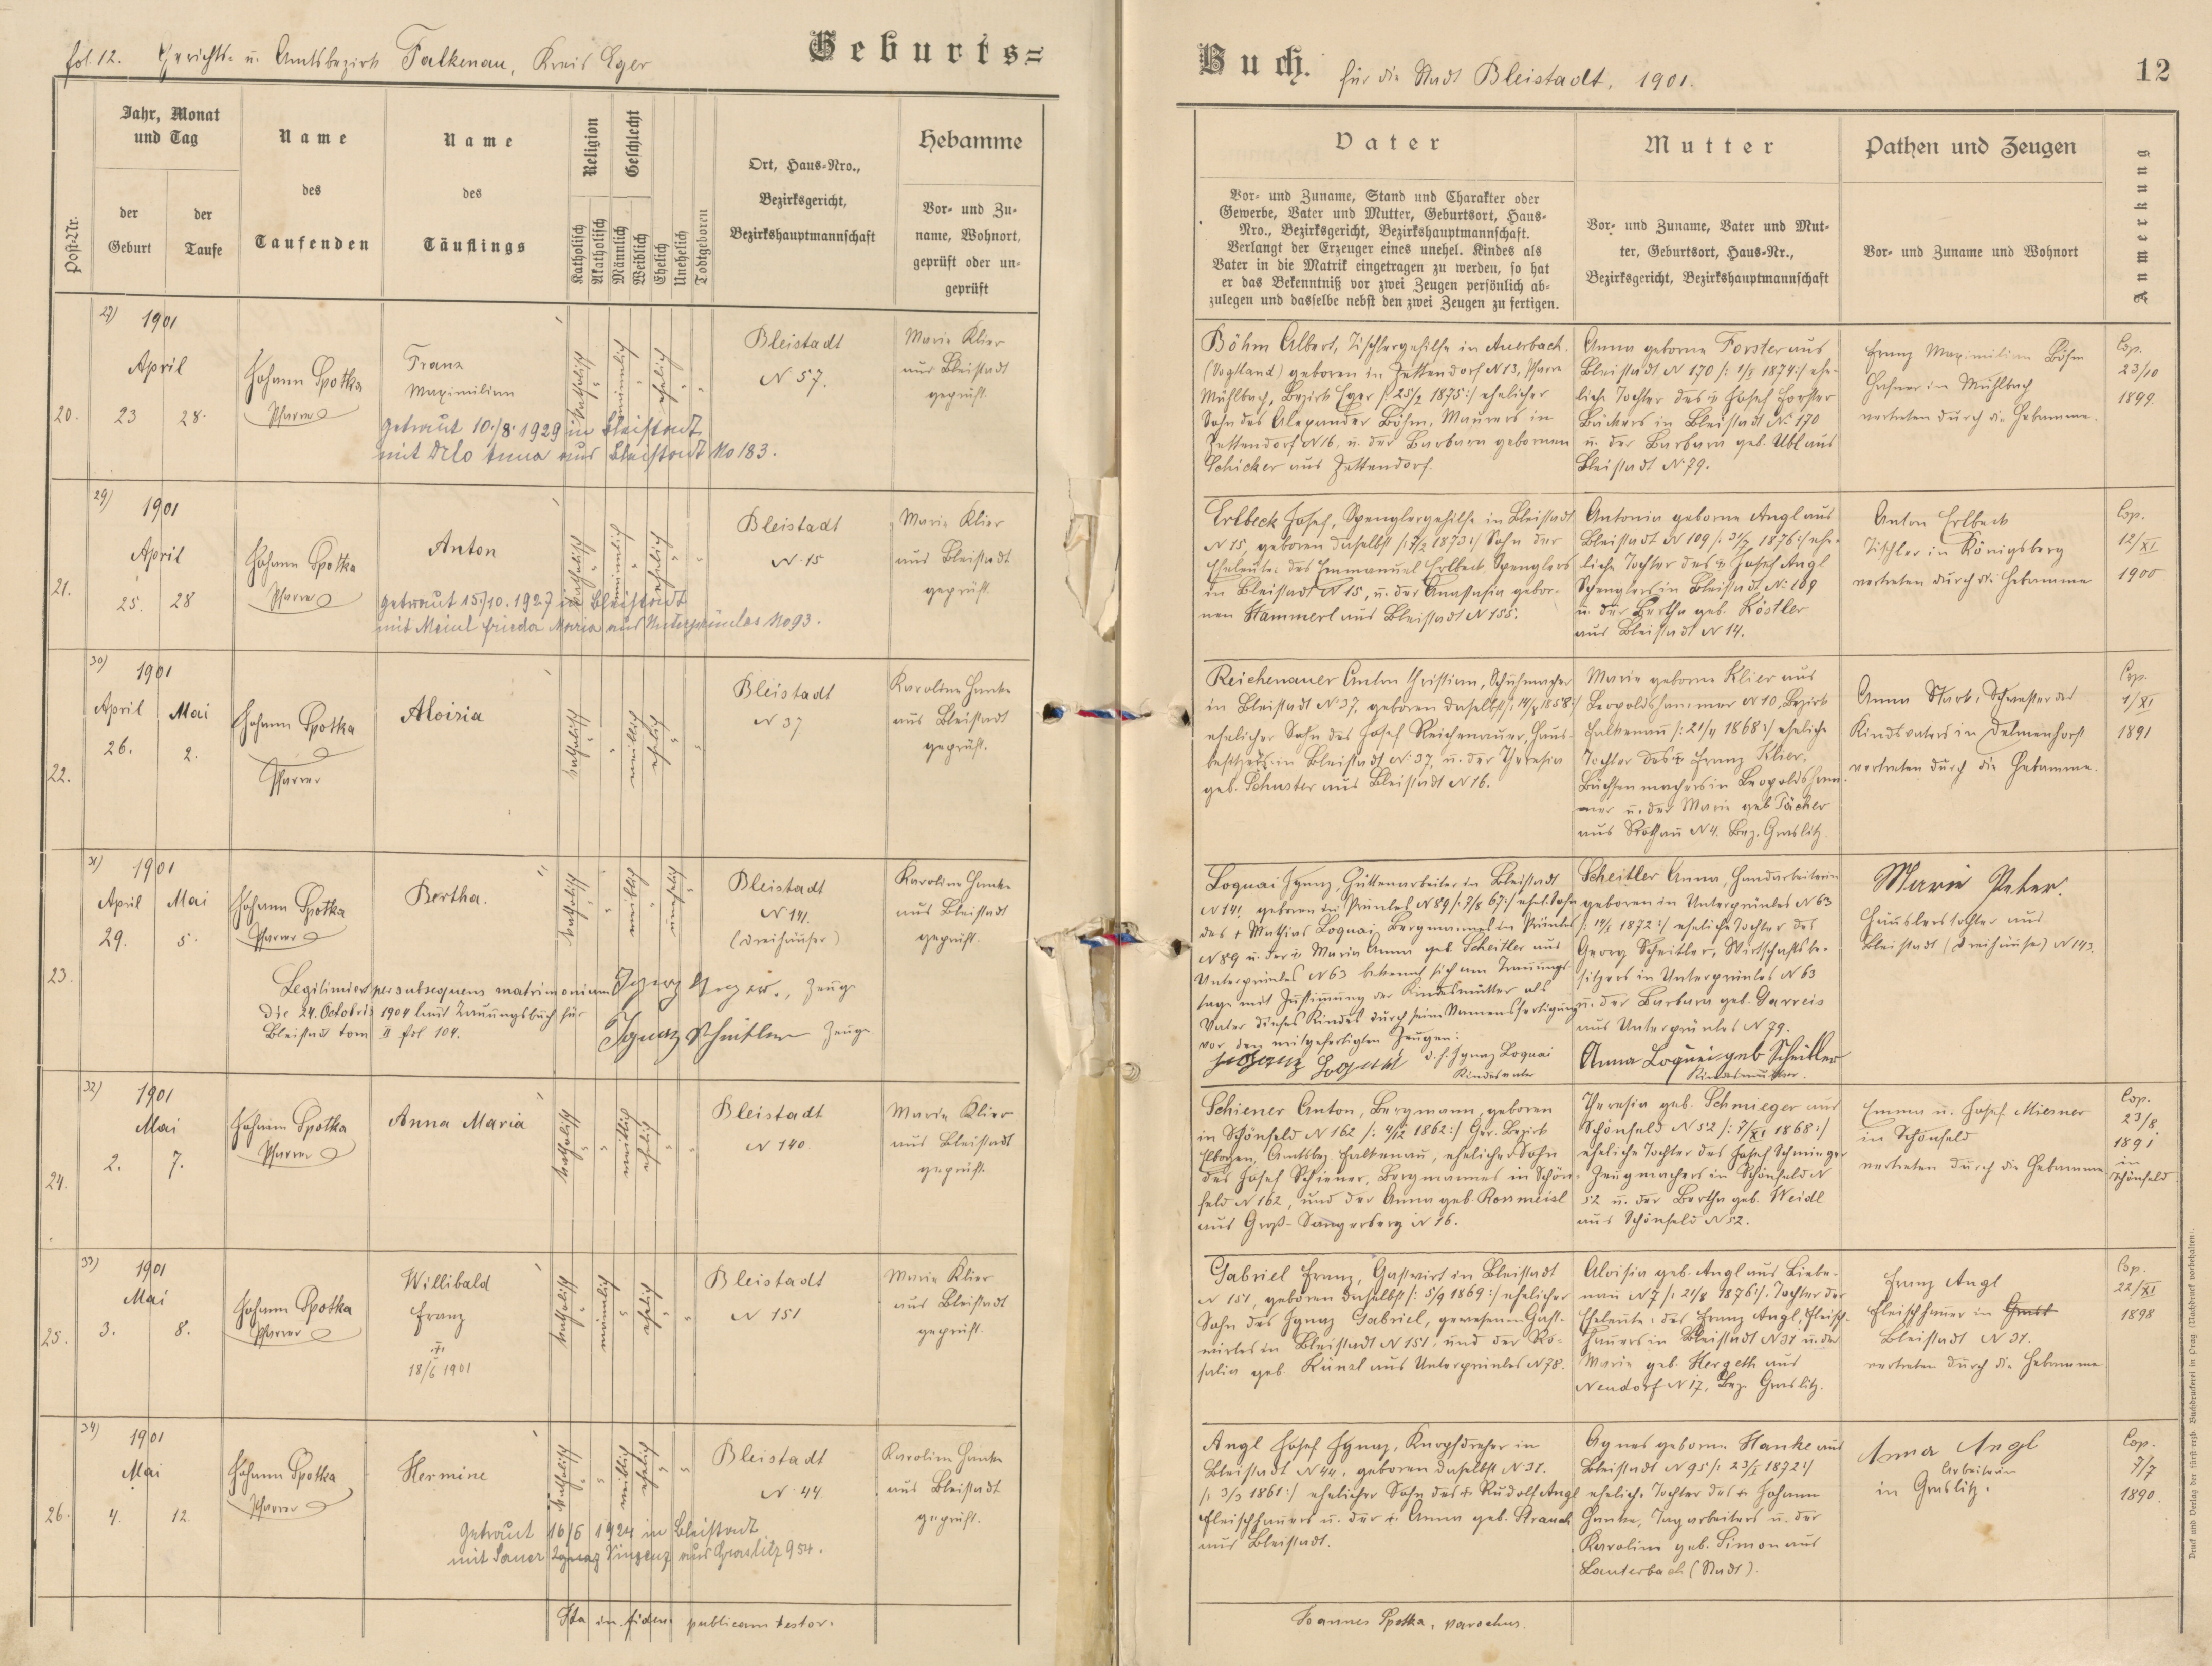 fol. 12. Gerichts- u. Amtsbezirk Falkenau, Kreis Eger
Geburts=
Jahr, Monat
und Tag
Post-Nr.
der
Geburt
der
Taufe
Name
des
Taufenden
Name
des
Täuflings
Religion
Katholisch
Akatholisch
Geschlecht
Männlich
Weiblich
Ehelich
Unehelich
Todtgeboren
Ort, Haus-Nro.,
Bezirksgericht,
Bezirkshauptmannschaft
Hebamme
Vor- und Zu-
name, Wohnort,
geprüft oder un-
geprüft
27)
1901
April
20. 23 28.
Johann Spotka
Pfarrer
Franz
Maximilian
katholisch
männlich
ehelich
Bleistadt
N 57.
Marie Klier
aus Bleistadt
geprüft.
getraut 10./8. 1929 in Bleistadt
mit Anna aus Bleistadt No 183.
29)
1901
April
21. 25. 28
Johann Spotka
Pfarrer
Anton
katholisch
männlich
ehelich
Bleistadt
N. 15
Marie Klier
aus Bleistadt
geprüft.
getraut 15./10. 1927 in Bleistadt
mit Meinl Frieda Maria aus Unterprünlas No 93.
30)
1901
April Mai
22. 26. 2.
Johann Spotka
Pfarrer
Aloisia
katholisch
weiblich
ehelich
Bleistadt
N 37
Karoline Hanke
aus Bleistadt
geprüft.
31)
1901
April Mai
23. 29. 5.
Johann Spotka
Pfarrer
Bertha.
katholisch
weiblich
unehelich
Bleistadt
N 141.
(Dreihäuser)
Karoline Hanke
aus Bleistadt
geprüft.
Legitimiert per subsequens matrimonium Zeuge
die 24. Octobris 1904 laut Trauungsbuch für
Bleistadt tom II fol 104.
Ignaz Scheitler Zeuge
32)
1901
Mai
24. 2. 7.
Johann Spotka
Pfarrer
Anna Maria
katholisch
weiblich
ehelich
Bleistadt
N 140.
Marie Klier
aus Bleistadt
geprüft.
33)
1901
Mai
25. 3. 8.
Johann Spotka
Pfarrer
Willibald
Franz
18/6 1901
katholisch
männlich
ehelich
Bleistadt
N 151
Marie Klier
aus Bleistadt
geprüft.
34)
1901
Mai
26. 4. 12.
Johann Spotka
Pfarrer
Hermine
katholisch
weiblich
ehelich
Bleistadt
N. 44
Karoline Hanke
aus Bleistadt
geprüft.
getraut 16/6 1924 in Bleistadt
mit Sauer Ignaz Vinzenz aus Graslitz 954.
Ita in fidem publicam testor.
Buch. für die Stadt Bleistadt, 1901.
12
Vater
Vor- und Zuname, Stand und Charakter oder
Gewerbe, Vater und Mutter, Geburtsort, Haus-
Nro., Bezirksgericht, Bezirkshauptmannschaft.
Verlangt der Erzeuger eines unehel. Kindes als
Vater in die Matrik eingetragen zu werden, so hat
er das Bekenntniß vor zwei Zeugen persönlich ab-
zulegen und dasselbe nebst den zwei Zeugen zu fertigen.
Mutter
Vor- und Zuname, Vater und Mut-
ter, Geburtsort, Haus-Nr.,
Bezirksgericht, Bezirkshauptmannschaft
Pathen und Zeugen
Vor- und Zuname und Wohnort
Anmerkung
Böhm Albert, Tischlergehilfe in Auerbach.
(Vogtland) geboren in Zettendorf N 13, Pfarre
Mühlbach, Bezirk Eger /: 25/2 1875:/ ehelicher
Sohn des Alexander Böhm, Maurers in
Zettendorf N 16, u. der Barbara gebornen
Schicker aus Zettendorf.
Anna geborne Forster aus
Bleistadt N 170 /: 1874:/ ehe-
liche Tochter des Josef Forster
Bäckers in Bleistadt N. 170
u. der Barbara geb. Ubl aus
Bleistadt N. 79.
Franz Maximilian Böhm
Hafner in Mühlbach
vertreten durch die Hebamme.
Cop.
23/10
1899.
Erlbeck Josef, Spenglergehilfe in Bleistadt
N 15, geboren daselbst /: 7/2 1873:/ Sohn der
Eheleute: des Emmanuel Erlbeck, Spenglers
in Bleistadt N 15, u. der Anastasia gebor-
nen Hammerl aus Bleistadt N 155.
Antonia geborne Angl aus
Bleistadt N 109 /: 1876:/ ehe-
liche Tochter des Josef Angl
Spenglers in Bleistadt N. 109
u. der Bertha geb. Köstler
aus Bleistadt N 14.
Anton Erlbeck
Tischler in Königsberg
vertreten durch die Hebamme
Cop.
12/XI
1900
Reichenauer Anton Christian, Schuhmacher
in Bleistadt N. 37, geboren daselbst /: 1858:/
ehelicher Sohn des Josef Reichenauer, Haus-
besitzers in Bleistadt N. 37, u. der Theresia
geb. Schuster aus Bleistadt N 16.
Marie geborne Klier aus
Leopoldshammer N 10, Bezirk
Falkenau /: 1868:/ eheliche
Tochter des Franz Klier,
Büchsenmachers in Leopoldsham-
mer u. der Marie geb. Päcker
aus Rothau N 4. Bez. Graslitz.
Anna Stark, Schwester des
Kindsvaters in Delmenhorst
vertreten durch die Hebamme.
Cop.
1/XI
1891
Loquai Ignaz, Hüttenarbeiter in Bleistadt
N 141, geboren in Prünles N 89 /: 7/8 67:/ ehel. Sohn
des + Mathias Loquai, Bergmannes in Prünles
N 89 u. der Maria Anna geb. Scheitler aus
Unterprünles N 63 bekennt sich am Trauungs-
tage mit Zustimmung der Kindesmutter als
Vater dieses Kindes durch seine Namensfertigung
vor den mitgefertigten Zeugen:
Ignaz Loquai d. h. Ignaz Loquai
Kindesvater
Scheitler Anna, Handarbeiterin
geboren in Unterprünles N 63
/: 1872:/ eheliche Tochter des
Georg Scheitler, Wirtschaftsbe-
sitzers in Unterprünles N 63
u. der Barbara geb. Gareis
aus Unterprünles N 79.
Anna Loquai geb Scheitler
Kindesmutter.
Marie Peter.
Häuslerstochter aus
Bleistadt (Dreihäuser) N 143.
Schiener Anton, Bergmann, geboren
in Schönfeld N 162 /: 4/12 1862:/ Ger. Bezirk
Elbogen, Amtsbez. Falkenau, ehelicher Sohn
des Josef Schiener, Bergmannes in Schön-
feld N 162, und der Anna geb. Ronmeisl
aus Groß-Sangerberg N 16.
Theresia geb. Schmieger aus
Schönfeld N 52 /: 7/XI 1868:/
eheliche Tochter des Josef Schmieger
Zeugmachers in Schönfeld N
52 u. der Bertha geb. Weidl
aus Schönfeld N 52.
Emma u. Josef Miesner
in Schönfeld
vertreten durch die Hebamme.
Cop.
23/8
1891
in
Schönfeld
Gabriel Franz, Gastwirt in Bleistadt
N 151, geboren daselbst /: 5/9 1869:/ ehelicher
Sohn des Ignaz Gabriel, gewesenen Gast-
wirtes in Bleistadt N 151, und der Ro-
salia geb. Künzl aus Unterprünles N 78.
Aloisia geb. Angl aus Liebe-
nau N 7 /: 21/8 1876:/, Tochter der
Eheleute: des Franz Angl, Fleisch-
hauers in Bleistadt N 31 u. der
Marie geb. Hergeth aus
Neudorf N 17, Bez. Graslitz.
Franz Angl
Fleischhauer in
Bleistadt N 31.
vertreten durch die Hebamme
Cop.
22/XI
1898
Angl Josef Ignaz, Knopfdreher in
Bleistadt N 44, geboren daselbst N 31.
/: 3/3 1861:/ ehelicher Sohn des Rudolf Angl
Fleischhauers u. der Anna geb. Strauch
aus Bleistadt.
Agnes geborne Hanke aus
Bleistadt N 95 /: 1872:/
eheliche Tochter des Johann
Hanke, Tagarbeiters u. der
Karoline geb. Simon aus
Lauterbach (Stadt).
Anna Angl
Arbeiterin
in Graslitz.
Cop.
7/7
1890.
Joannes Spotka, parochus.
Druck und Verlag der fürst-erzb. Buchdruckerei in Prag. (Nachdruck vorbehalten).